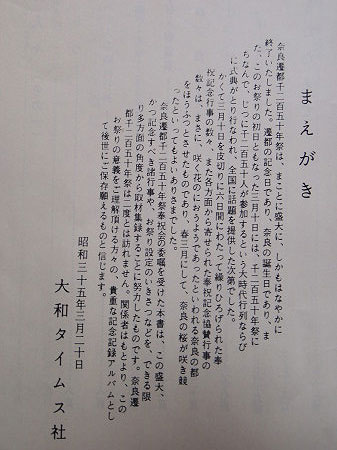 まえがき
奈良遷都千二百五十年祭は、まことに盛大に、しかもはなやかに
終了いたしました。遷都の記念日であり、奈良の誕生日であり、ま
た、このお祭りの初日ともなった三月十日には、千二百五十年祭に
ちなんで、じつに千二百五十人が参加するという大時代行列ならび
に式典がとり行なわれ、全国に話題を提供いた次第でした。
かくて三月十日を皮切りに六日間にわたって繰りひろげられた奉
祝記念行事の数々、また各方面から寄せられた奉祝記念協賛行事の
数々は、まさに咲く花の匂おうようであったといわれる奈良の都
をほうふつとさせたものであり、春三月にして、奈良の桜が咲き競
ったといってもよいありさまでした。
奈良遷都千二百五十年祭奉祝会の委嘱を受けた本書は、この盛大、
かつ記念すべき諸行事や、お祭り設定のいきさつなどを、できる限
り多方面の角度から取材集録することに努力したものです。奈良遷
都千二百五十年祭は二度とは訪れません。関係者はもとより、この
お祭りの意義をご理解頂ける方々の、貴重な記念記録アルバムとし
て後世にご保存願えるものと信じます。
昭和三十五年三月二十日
大和タイムス社